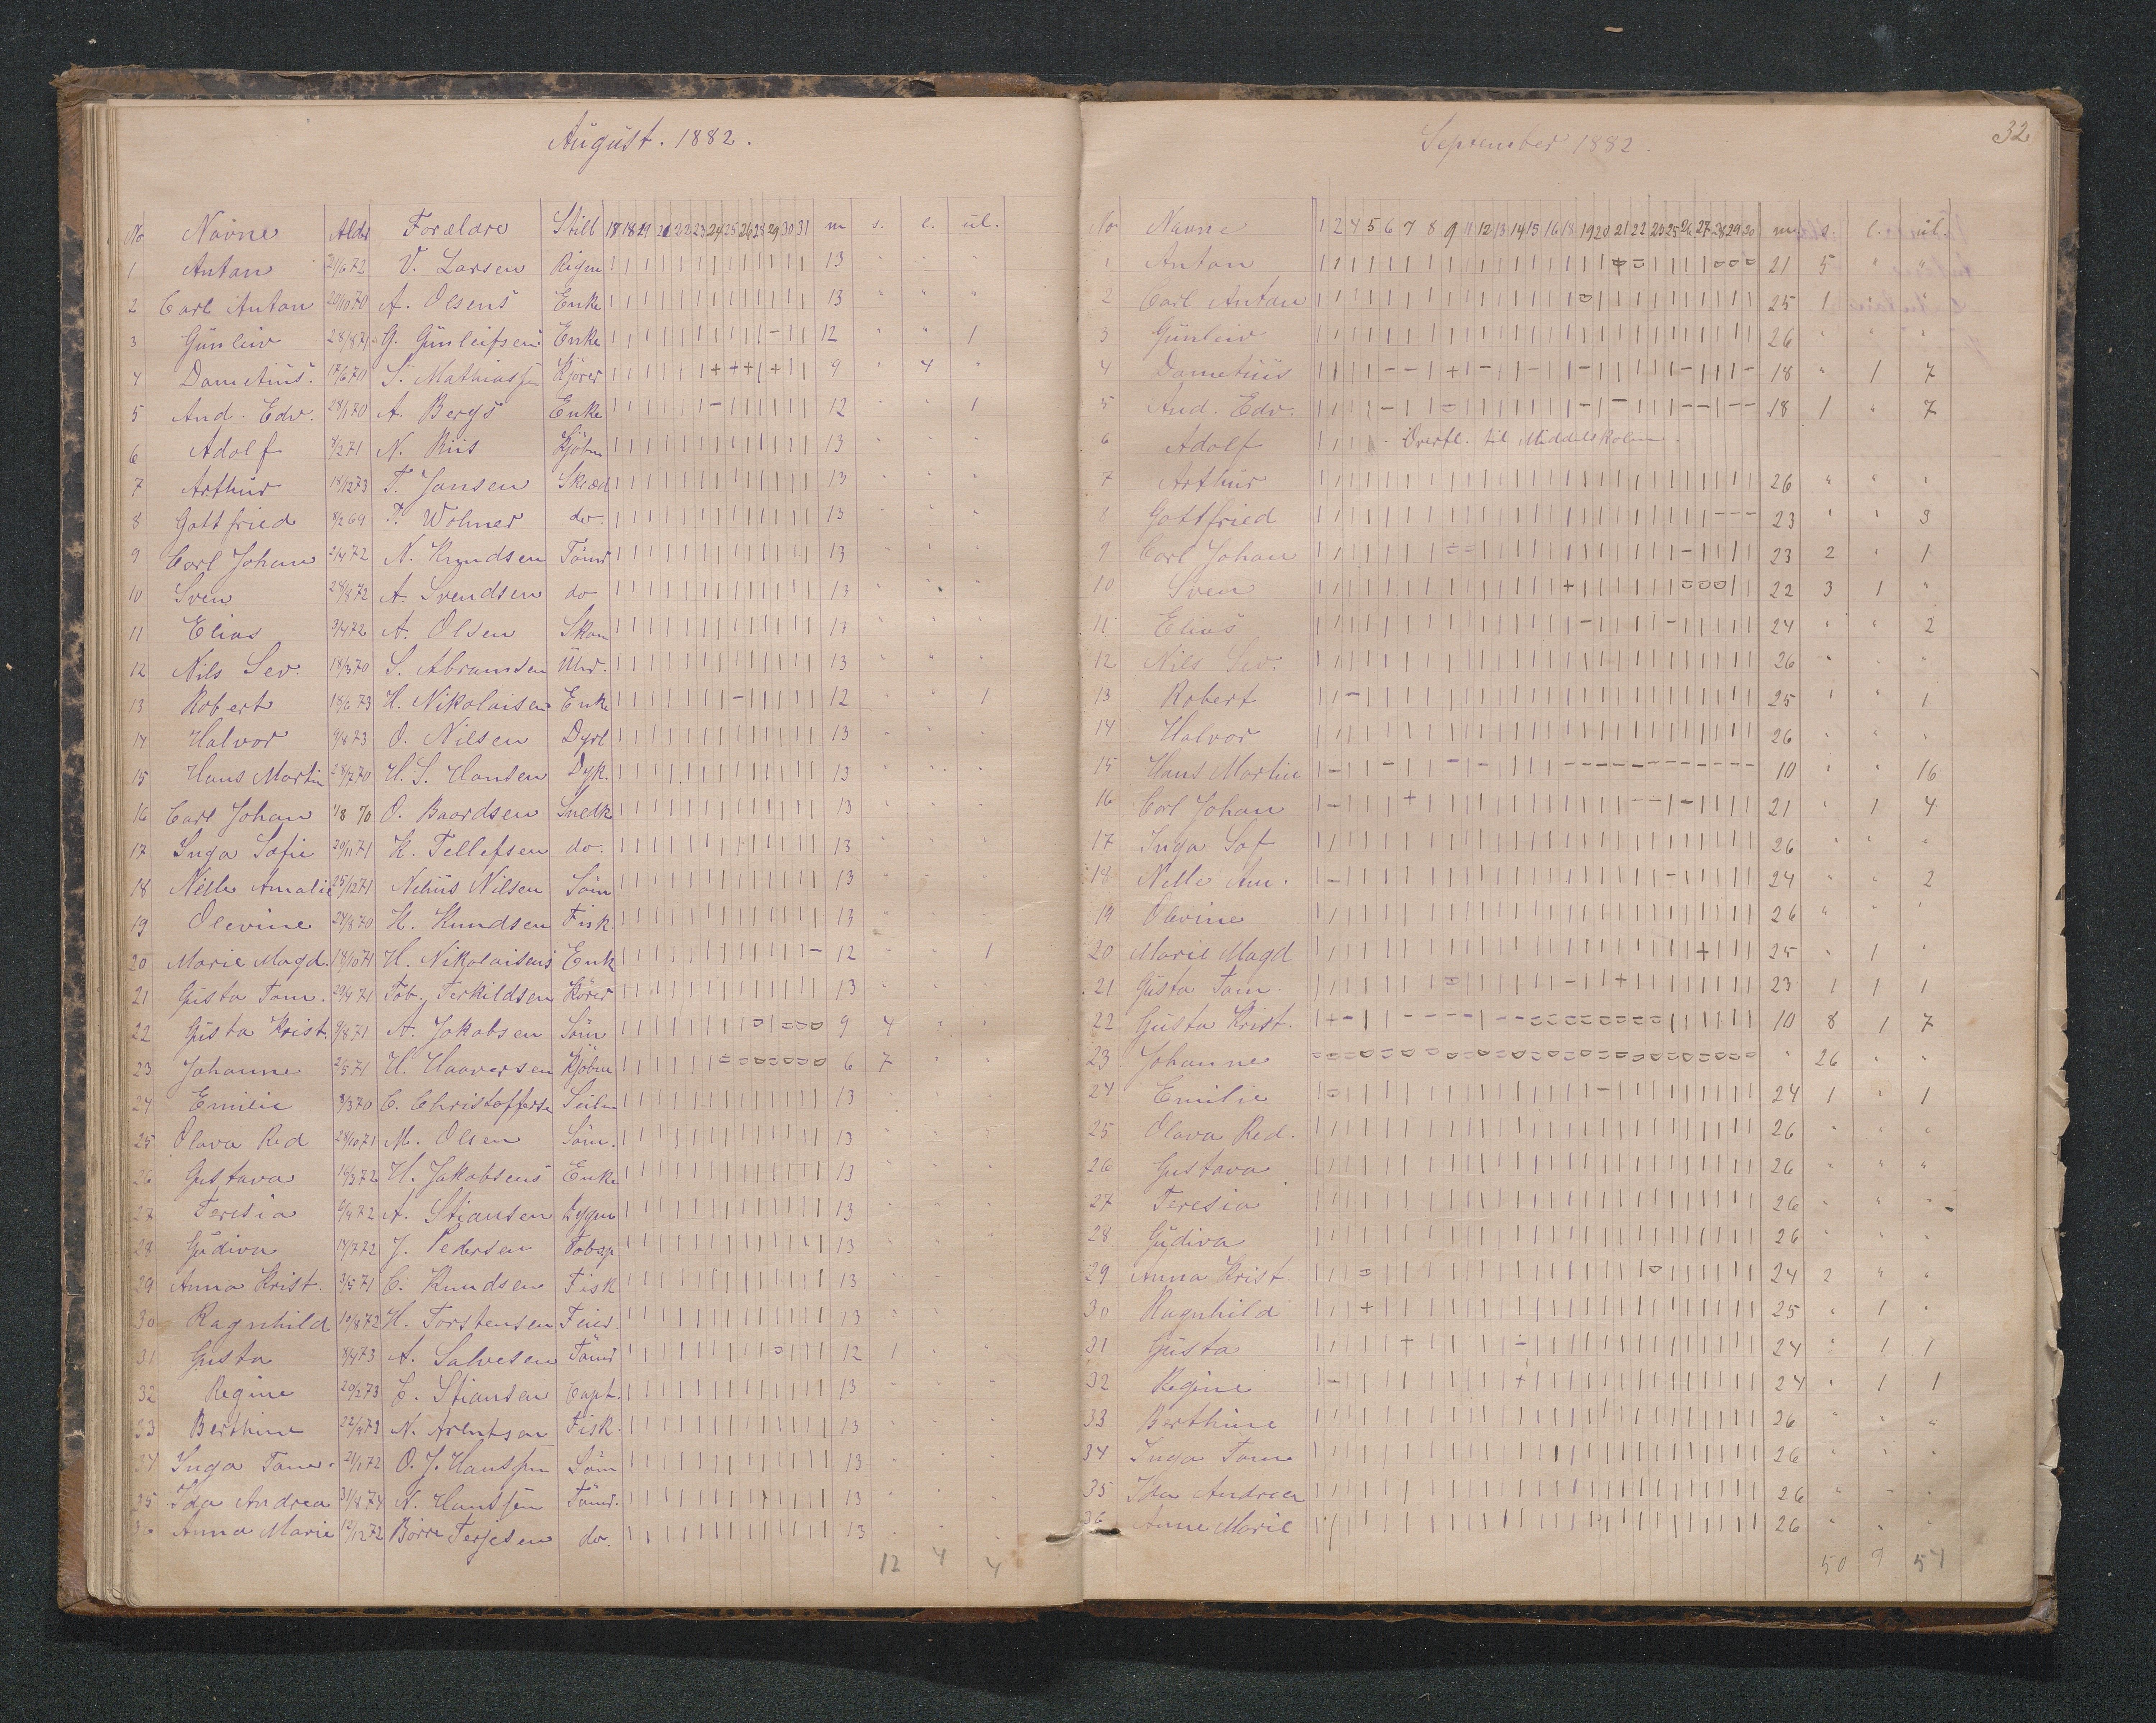 August. 1882.
No Navne Alder Forældre Still 17 18 19 21 22 23 24 25 26 28 29 30 31 m s. l. ul.
1 Anton 21/6 72 V. Larsen Rigm | | | | | | | | | | | | | 13 " " "
2 Carl Anton 20/10 70 A. Olsens Enke | | | | | | | | | | | | | 13 " " "
3 Gunleiv 28/8 71 G. Gunleifsens Enke | | | | | | | | | | - | | 12 " " 1
4 Dametius 17/6 70 S. Mathiassen Kjörer | | | | | | + + + | + | | 9 " 4 "
5 And. Edv. 28/1 70 A. Bergs Enke | | | | | | - | | | | | | 12 " " 1
6 Adolf 4/2 71 N. Riis Kjöbm | | | | | | | | | | | | | 13 " " "
7 Arthur 18/12 73 T. Jansen Skræd | | | | | | | | | | | | | 13 " " "
8 Gottfried 8/2 69 T. Wohner do. | | | | | | | | | | | | | 13 " " "
9 Carl Johan 2/4 72 N. Knudsen Tömr | | | | | | | | | | | | | 13 " " "
10 Sven 28/8 72 A. Svendsen do | | | | | | | | | | | | | 13 " " "
11 Elias 9/4 72 A. Olsen Skom | | | | | | | | | | | | | 13 " " "
12 Nils Sev. 18/3 70 S. Abramsen Uhr. | | | | | | | | | | | | | 13 " " "
13 Robert 18/6 73 H. Nikolaisens Enke | | | | | | | - | | | | | 12 " " 1
14 Halvor 9/8 73 O. Nilsen Dyrl | | | | | | | | | | | | | 13 " " "
15 Hans Martin 28/2 70 H. S. Hansen Dyk. | | | | | | | | | | | | | 13 " " "
16 Carl Johan 1/8 70 O. Baardsen Snedk | | | | | | | | | | | | | 13 " " "
17 Inga Sofie 20/11 71 K. Tellefsen do. | | | | | | | | | | | | | 13 " " "
18 Nelle Amalie 25/12 71 Nelius Nilsen Söm | | | | | | | | | | | | | 13 " " "
19 Olevine 24/8 70 K. Knudsen Fisk. | | | | | | | | | | | | | 13 " " "
20 Marie Magd. 18/10 71 H. Nikolaisens Enk | | | | | | | | | | | | - 12 " " 1
21 Gusta Tom. 29/4 71 Tob. Terkildsen Körer | | | | | | | | | | | | | 13 " " "
22 Gusta Krist. 9/8 71 A. Jakobsen Söm | | | | | | | | o | o o o 9 4 " "
23 Johanne 2/5 71 H. Haaversen Kjöbm | | | | | | o o o o o o o 6 7 " "
24 Emilie 8/3 70 C. Christoffersen Seilm | | | | | | | | | | | | | 13 " " "
25 Olava Red 28/10 71 M. Olsen Söm. | | | | | | | | | | | | | 13 " " "
26 Gustava 14/3 72 H. Jakobsens Enke | | | | | | | | | | | | | 13 " " "
27 Teresia 9/4 72 A. Stiansen | | | | | | | | | | | | | 13 " " "
28 Gudiva 14/7 72 J. Pedersen | | | | | | | | | | | | | 13 " " "
29 Anna Krist. 3/5 71 C. Knudsen Fisk | | | | | | | | | | | | | 13 " " "
30 Ragnhild 10/8 72 H. Torstensen Feier. | | | | | | | | | | | | | 13 " " "
31 Gusta 8/4 73 A. Salvesen Tömr | | | | | | | | | o | | | 12 1 " "
32 Regine 20/2 73 E. Stiansen Capt. | | | | | | | | | | | | | 13 " " "
33 Berthine 22/4 73 N. Arentsen Fisk. | | | | | | | | | | | | | 13 " " "
34 Inga Tom. 21/1 72 O. J. Hanssen Söm | | | | | | | | | | | | | 13 " " "
35 Ida Andrea 31/8 74 N. Hanssen Tömr. | | | | | | | | | | | | | 13 " " "
36 Anna Marie 12/12 72 Börre Terjesen do. | | | | | | | | | | | | | 13 " " "
12 4 4
32
September 1882.
No Navne 1 2 4 5 6 7 8 9 11 12 13 14 15 16 18 19 20 21 22 23 25 26 27 28 29 30 m s. l. ul.
1 Anton 21 5 " "
2 Carl Anton 25 1 " "
3 Gunleiv 26 " " "
4 Dametius 18 " 1 7
5 And. Edv. 18 1 " 7
6 Adolf | | | | Overfl. til Middelskolen.
7 Arthur 26 " " "
8 Gottfried 23 " " 3
9 Carl Johan 23 2 " 1
10 Sven 22 3 1 "
11 Elias 24 " " 2
12 Nils Sev. 26 " " "
13 Robert 25 " " 1
14 Halvor 26 " " "
15 Hans Martin 10 " " 16
16 Carl Johan 21 " 1 4
17 Inga Sof 26 " " "
18 Nelle Am. 24 " " 2
19 Olevine 26 " " "
20 Marie Magd 25 " 1 "
21 Gusta Tom. 23 1 1 1
22 Gusta Krist. 10 8 1 7
23 Johanne " 26 " "
24 Emilie 24 1 " 1
25 Olava Red. 26 " " "
26 Gustava 26 " " "
27 Teresia 26 " " "
28 Gudiva 26 " " "
29 Anna Krist. 24 2 " "
30 Ragnhild 25 " 1 "
31 Gusta 24 " 1 1
32 Regine 24 " 1 1
33 Berthine 26 " " "
34 Inga Tom 26 " " "
35 Ida Andrea 26 " " "
36 Anne Marie 26 " " "
50 9 54